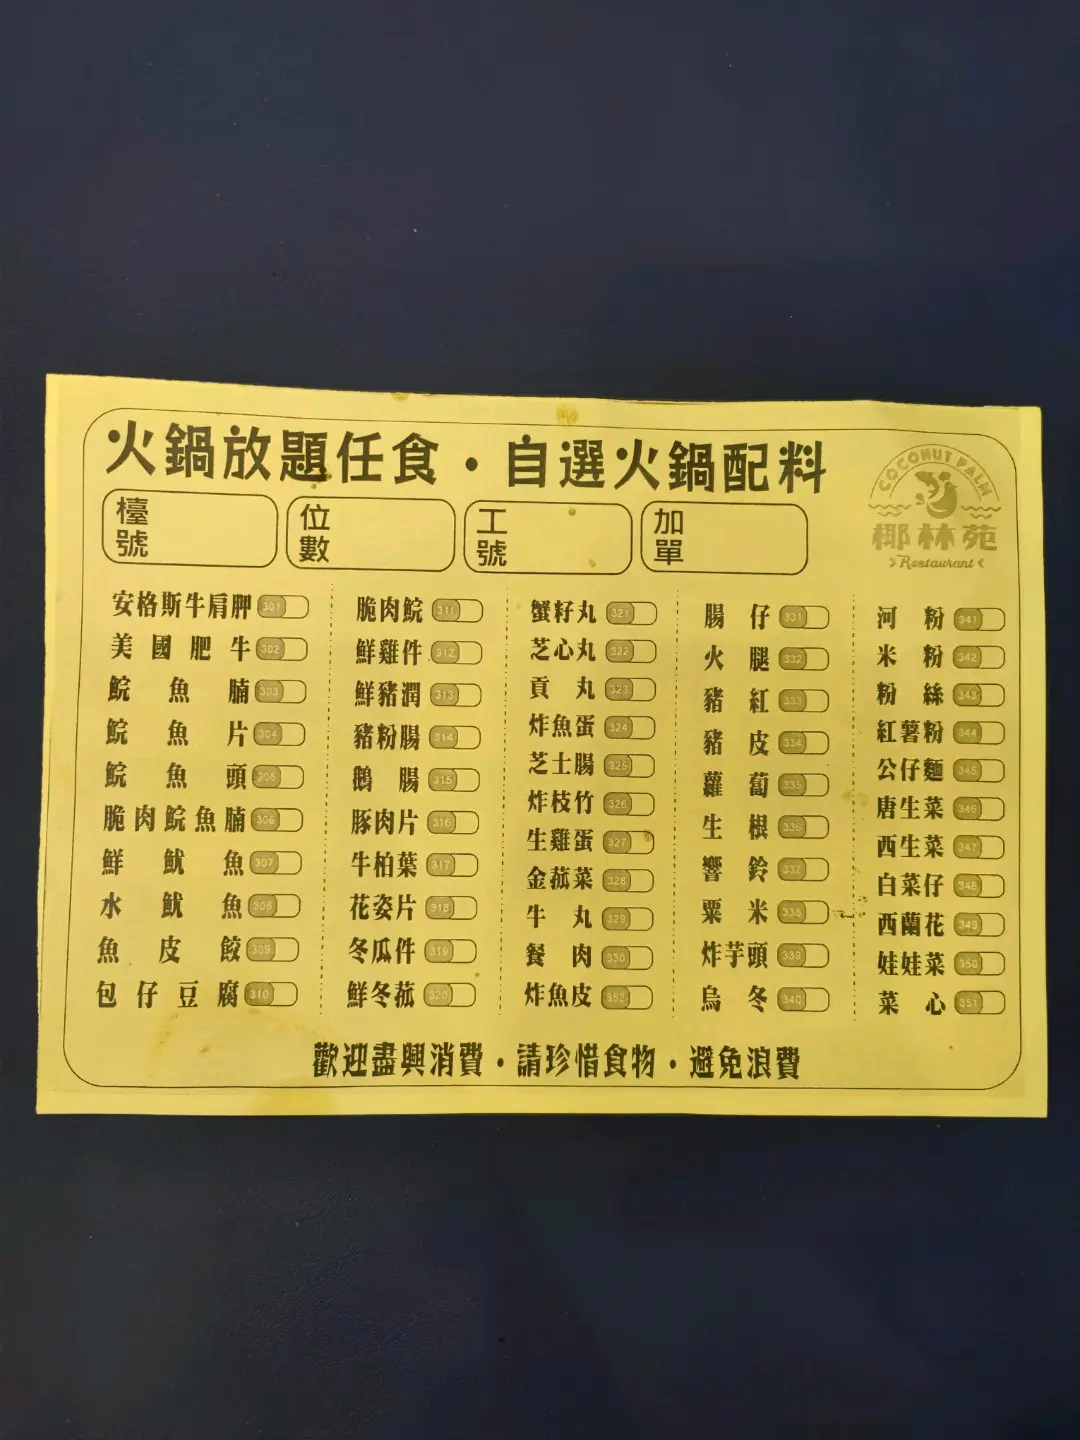 火鍋放題任食・自選火鍋配料
COCONUT PALM
椰林苑
Restaurant
檯號
位數
工號
加單
安格斯牛肩胛 301
美國肥牛 302
鯇魚腩 303
鯇魚片 304
鯇魚頭 305
脆肉鯇魚腩 306
鮮魷魚 307
水魷魚 308
魚皮餃 309
包仔豆腐 310
脆肉鯇 311
鮮雞件 312
鮮豬潤 313
豬粉腸 314
鵝腸 315
豚肉片 316
牛柏葉 317
花姿片 318
冬瓜件 319
鮮冬菰 320
蟹籽丸 321
芝心丸 322
貢丸 323
炸魚蛋 324
芝士腸 325
炸枝竹 326
生雞蛋 327
金菰菜 328
牛丸 329
餐肉 330
炸魚皮 352
腸仔 331
火腿 332
豬紅 333
豬皮 334
蘿蔔 335
生根 336
響鈴 337
粟米 338
炸芋頭 339
烏冬 340
河粉 341
米粉 342
粉絲 343
紅薯粉 344
公仔麵 345
唐生菜 346
西生菜 347
白菜仔 348
西蘭花 349
娃娃菜 350
菜心 351
歡迎盡興消費・請珍惜食物・避免浪費